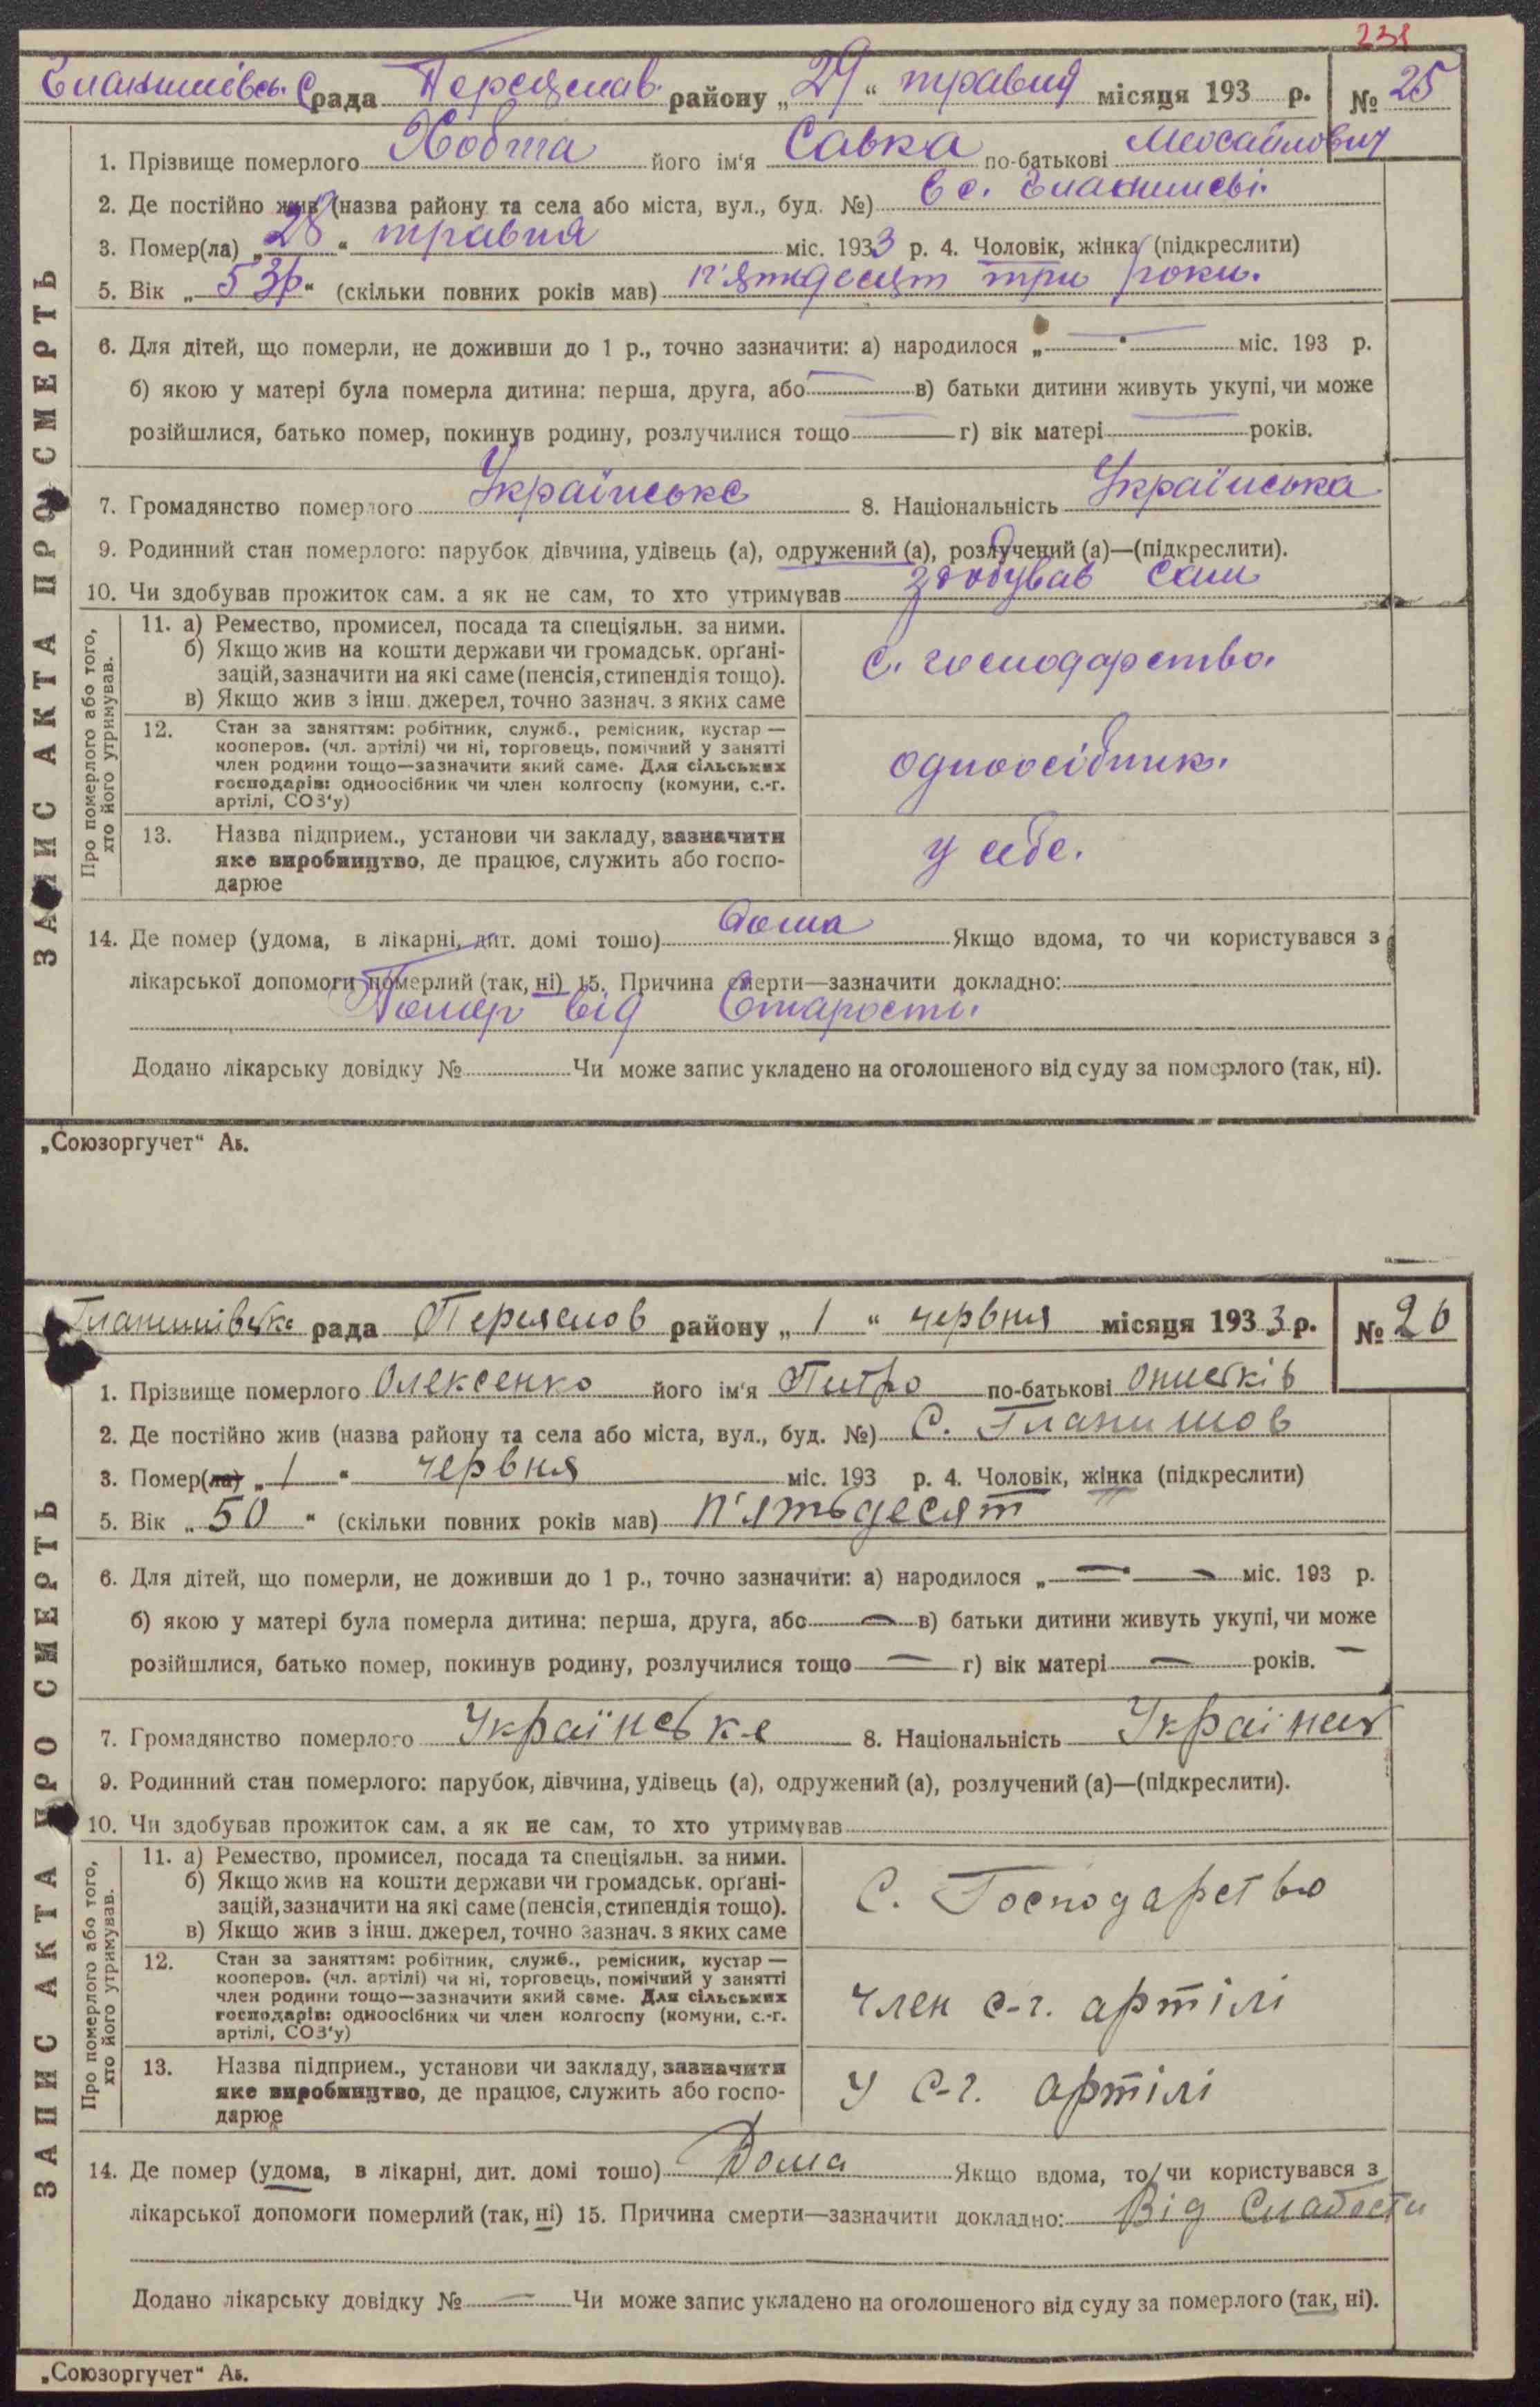 231
Єланишівсь. С рада Переяслав. району „29“ травня місяця 193 р. № 25
ЗАПИС АКТА ПРО СМЕРТЬ
1. Прізвище померлого Хобта його ім'я Савка по-батькові
2. Де постійно жив (назва району та села або міста, вул., буд. №) В с.
3. Помер(ла) „28“ травня міс. 1933 р. 4. Чоловік, жінка (підкреслити)
5. Вік „53р“ (скільки повних років мав) п'ятдесят три роки.
6. Для дітей, що померли, не доживши до 1 р., точно зазначити: а) народилося „—“ міс. 193 р.
б) якою у матері була померла дитина: перша, друга, або — в) батьки дитини живуть укупі, чи може
розійшлися, батько помер, покинув родину, розлучилися тощо — г) вік матері — років.
7. Громадянство померлого Українське 8. Національність Українська
9. Родинний стан померлого: парубок дівчина, удівець (а), одружений (а), розлучений (а)—(підкреслити).
10. Чи здобував прожиток сам. а як не сам, то хто утримував здобував сам
Про померлого або того, хто його утримував.
11. а) Ремество, промисел, посада та спеціяльн. за ними.
б) Якщо жив на кошти держави чи громадськ. орґані-
зацій, зазначити на які саме (пенсія, стипендія тощо).
в) Якщо жив з інш. джерел, точно зазнач. з яких саме
с. господарство.
12. Стан за заняттям: робітник, служб., ремісник, кустар —
кооперов. (чл. артілі) чи ні, торговець, помічний у занятті
член родини тощо—зазначити який саме. Для сільських
господарів: одноосібник чи член колгоспу (комуни, с.-г.
артілі, СОЗ'у)
одноосібник.
13. Назва підприєм., установи чи закладу, зазначити
яке виробництво, де працює, служить або госпо-
дарює
у себе.
14. Де помер (удома, в лікарні, дит. домі тошо) дома Якщо вдома, то чи користувався з
лікарської допомоги померлий (так, ні) 15. Причина смерти—зазначити докладно:
Помер від Старости.
Додано лікарську довідку № Чи може запис укладено на оголошеного від суду за померлого (так, ні).
„Союзоргучет“ Аб.
рада Переяслов району „1“ червня місяця 1933 р. № 26
ЗАПИС АКТА ПРО СМЕРТЬ
1. Прізвище померлого Олексенко його ім'я Питро по-батькові
2. Де постійно жив (назва району та села або міста, вул., буд. №) С. Гланишов
3. Помер(ла) „1“ червня міс. 193 р. 4. Чоловік, жінка (підкреслити)
5. Вік „50“ (скільки повних років мав) п'ятьдесят
6. Для дітей, що померли, не доживши до 1 р., точно зазначити: а) народилося „—“ — міс. 193 р.
б) якою у матері була померла дитина: перша, друга, або — в) батьки дитини живуть укупі, чи може
розійшлися, батько помер, покинув родину, розлучилися тощо — г) вік матері — років. —
7. Громадянство померлого Українське 8. Національність
9. Родинний стан померлого: парубок, дівчина, удівець (а), одружений (а), розлучений (а)—(підкреслити).
10. Чи здобував прожиток сам. а як не сам, то хто утримував
Про померлого або того, хто його утримував.
11. а) Ремество, промисел, посада та спеціяльн. за ними.
б) Якщо жив на кошти держави чи громадськ. орґані-
зацій, зазначити на які саме (пенсія, стипендія тощо).
в) Якщо жив з інш. джерел, точно зазнач. з яких саме
С. Господарство
12. Стан за заняттям: робітник, служб., ремісник, кустар —
кооперов. (чл. артілі) чи ні, торговець, помічний у занятті
член родини тощо—зазначити який саме. Для сільських
господарів: одноосібник чи член колгоспу (комуни, с.-г.
артілі, СОЗ'у)
член с-г. артілі
13. Назва підприєм., установи чи закладу, зазначити
яке виробництво, де працює, служить або госпо-
дарює
у с-г. артілі
14. Де помер (удома, в лікарні, дит. домі тошо) Дома Якщо вдома, то чи користувався з
лікарської допомоги померлий (так, ні) 15. Причина смерти—зазначити докладно: Від Слабости
Додано лікарську довідку № — Чи може запис укладено на оголошеного від суду за померлого (так, ні).
„Союзоргучет“ Аб.